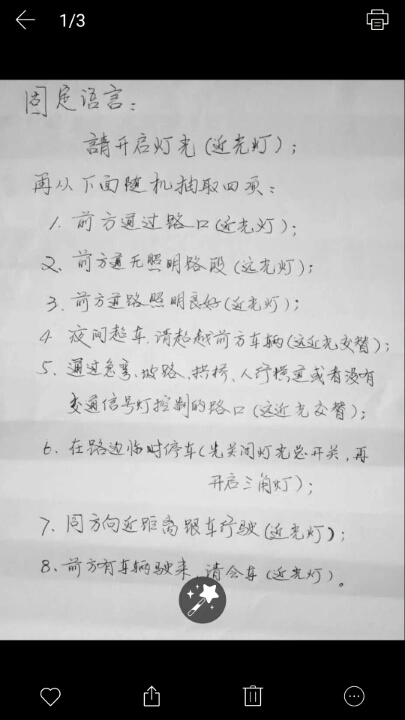 1/3
固定语言：
請开启灯光(近光灯)；
再从下面随机抽取四项：
1. 前方通过路口(近光灯)；
2、前方通无照明路段(远光灯)；
3. 前方道路照明良好(近光灯)；
4. 夜间超车,请超越前方车辆(远近光交替)；
5. 通过急弯、坡路、拱桥、人行横道或者没有
交通信号灯控制的路口(远近光交替)；
6. 在路边临时停车(先关闭灯光总开关,再
开启三角灯)；
7. 同方向近距离跟车行驶(近光灯)；
8、前方有车辆驶来,请会车(近光灯)。